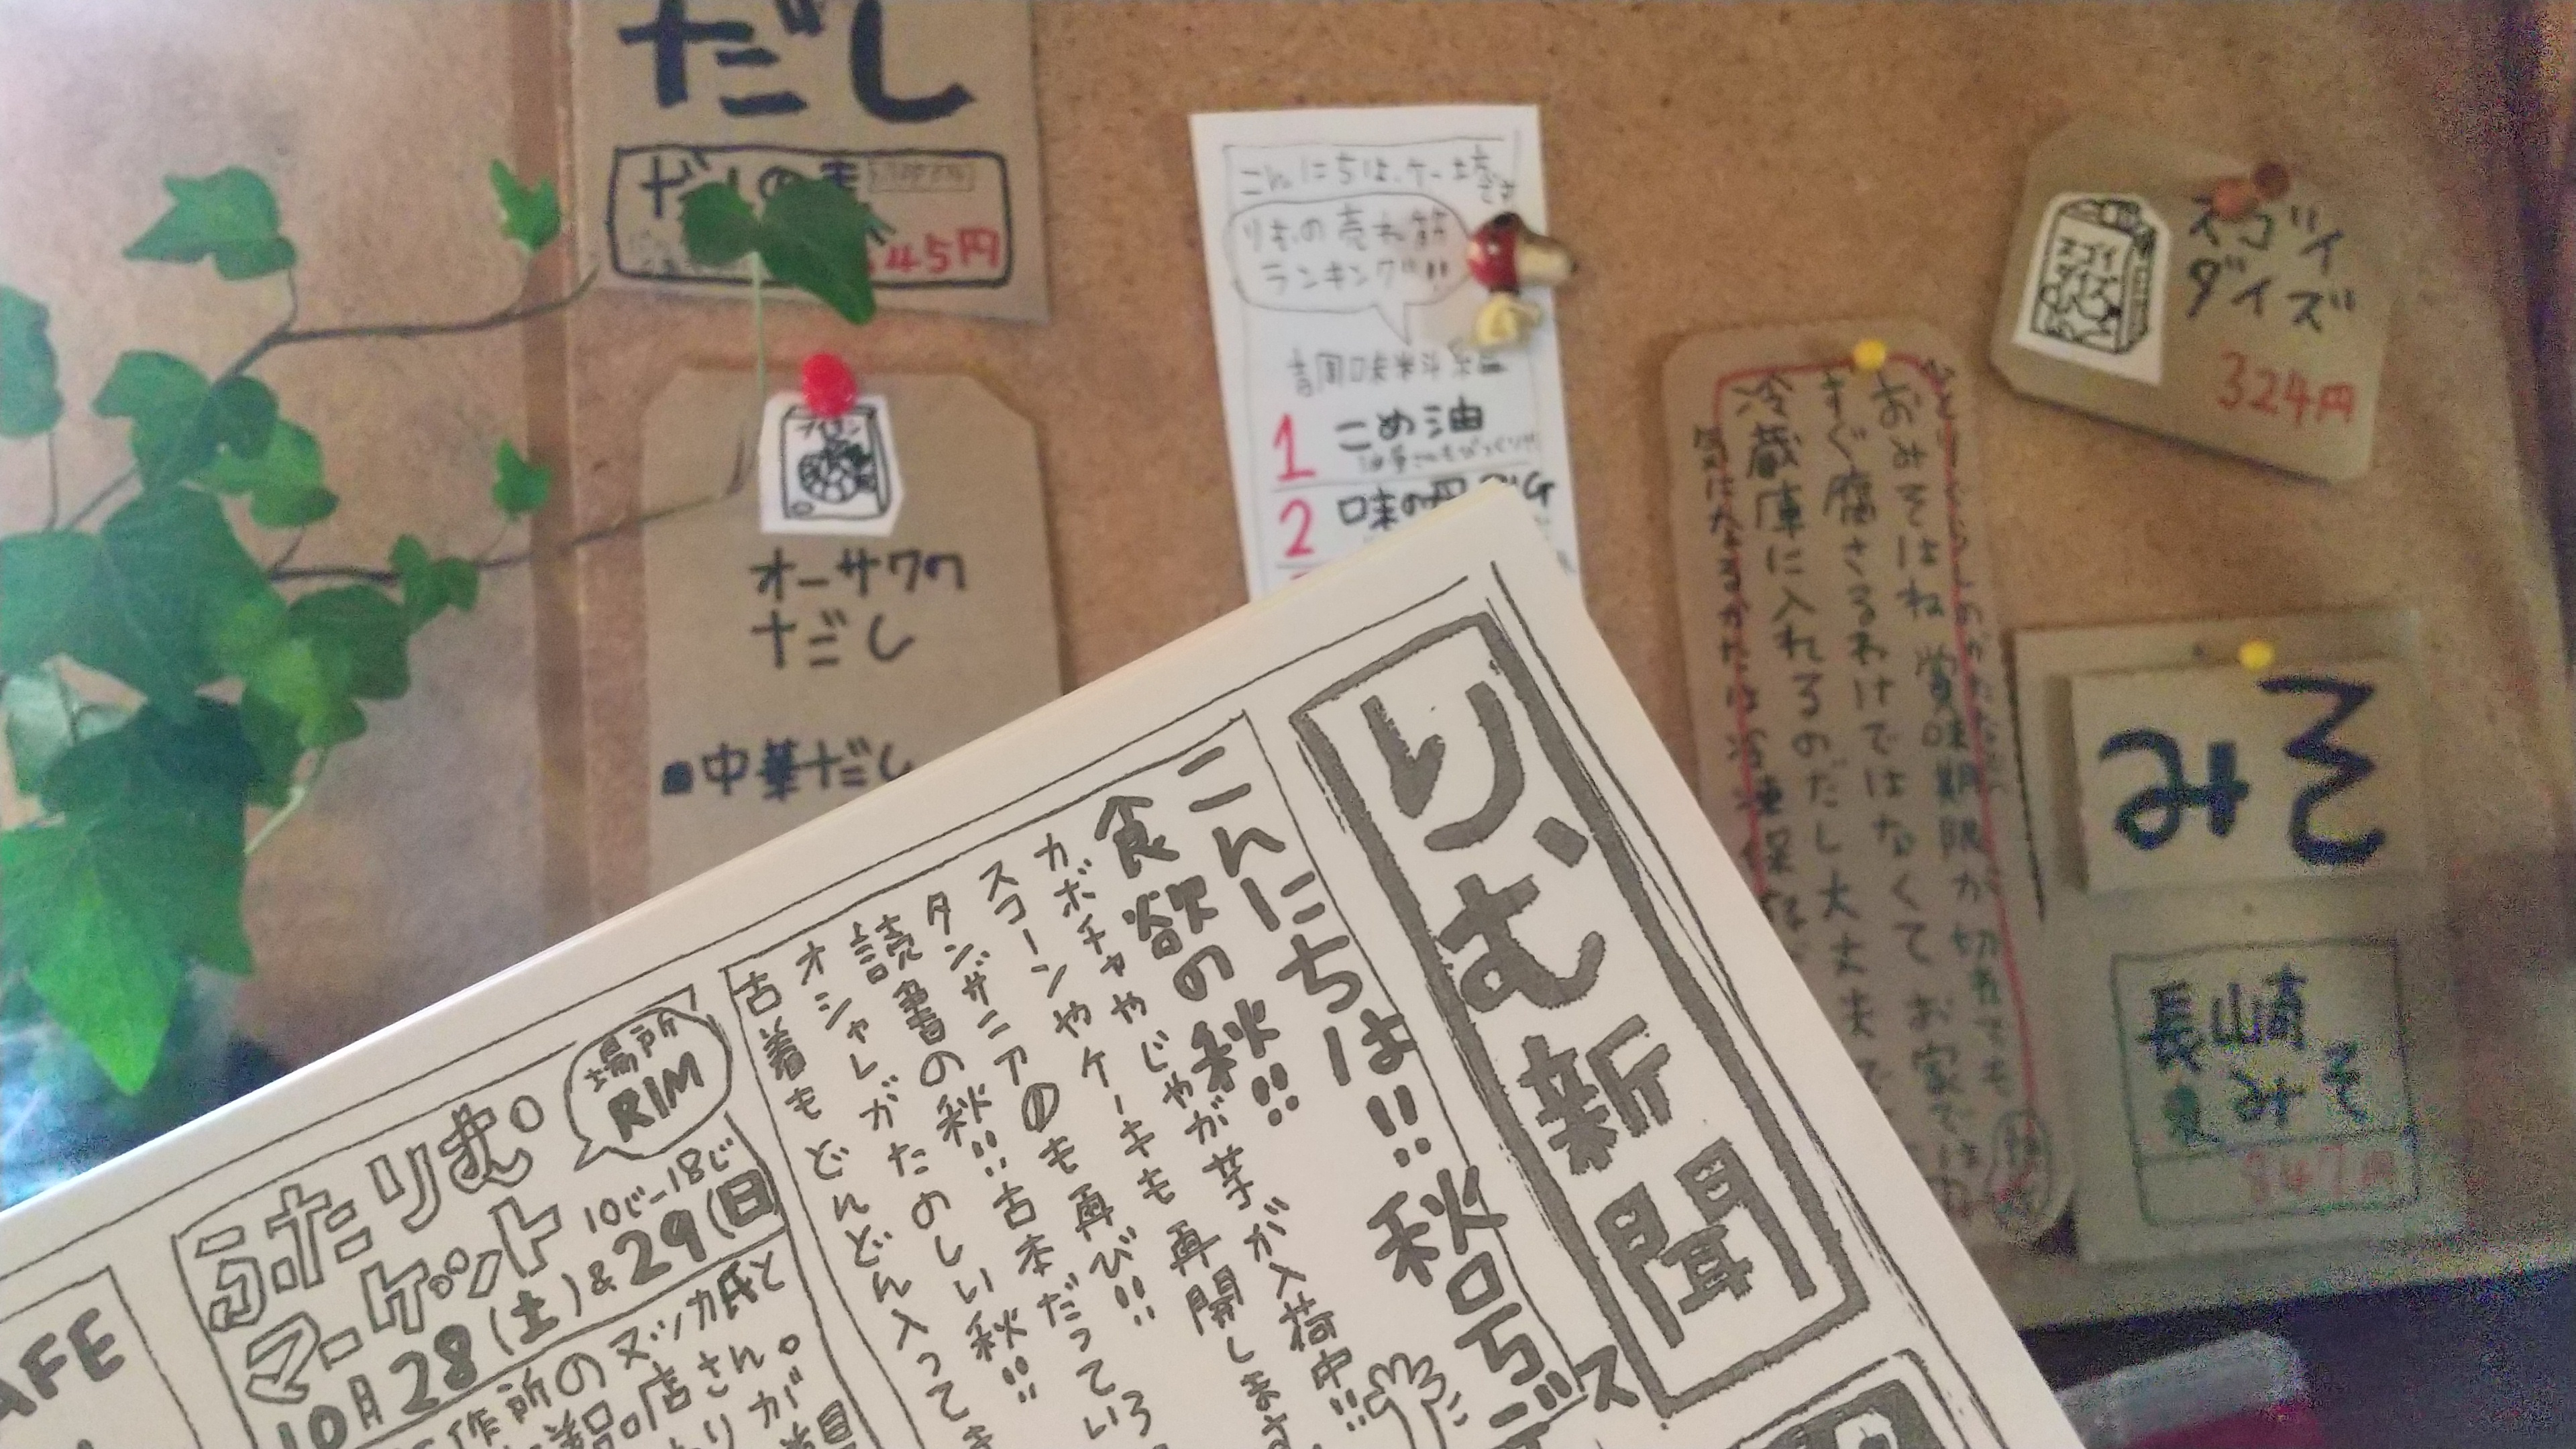 だし
だしの素
45円
オーサワの
だし
■中華だし
こんにちは、ケー
りむの売れ筋
ランキング!!
調味料編
1 こめ油
2 味の母 BIG
スゴイ
ダイズ
スゴイ
ダイズ
324円
おみそはね 賞味期限が切れても
すぐ腐さるわけではなくて お家では
冷蔵庫に入れるのだし大丈夫で
気になるかたは冷凍保存
みそ
長崎
麦みそ
847円
り、む新聞
こんにちは!! 秋号デス
食欲の秋!!
カボチャやじゃが芋が入荷中!!
スコーンやケーキも再開します
タンザニアのも再び!!
読書の秋!! 古本だっていろ
オシャレがたのしい秋!!
古着もどんどん入ってき
場所
RIM
ふたりむ。
マーケット
10じ-18じ
10月28(土)&29(日
作所のヌッカ氏と
品店さん。
りが
AFE